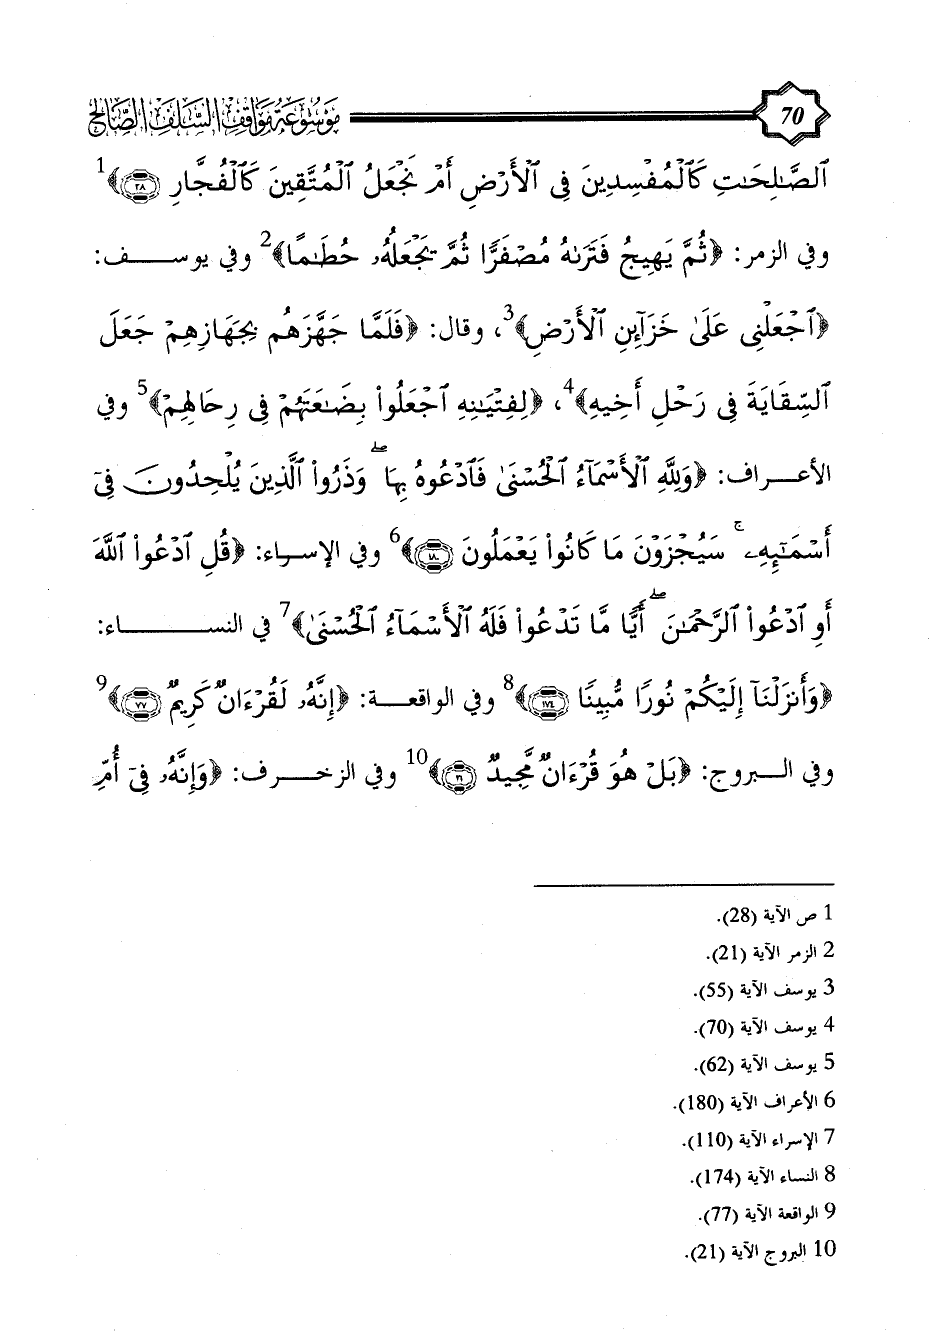 70
موسوعة مواقف السلف الصالح
ٱلصَّٰلِحَٰتِ كَٱلْمُفْسِدِينَ فِى ٱلْأَرْضِ أَمْ نَجْعَلُ ٱلْمُتَّقِينَ كَٱلْفُجَّارِ ﴿٢٨﴾ ﴾1
وفي الزمر: ﴿ثُمَّ يَهِيجُ فَتَرَىٰهُ مُصْفَرًّا ثُمَّ يَجْعَلُهُۥ حُطَٰمًا﴾2 وفي يوسف:
﴿ٱجْعَلْنِى عَلَىٰ خَزَآئِنِ ٱلْأَرْضِ﴾3، وقال: ﴿فَلَمَّا جَهَّزَهُم بِجَهَازِهِمْ جَعَلَ
ٱلسِّقَايَةَ فِى رَحْلِ أَخِيهِ﴾4، ﴿لِفِتْيَٰنِهِ ٱجْعَلُوا۟ بِضَٰعَتَهُمْ فِى رِحَالِهِمْ﴾5 وفي
الأعراف: ﴿وَلِلَّهِ ٱلْأَسْمَآءُ ٱلْحُسْنَىٰ فَٱدْعُوهُ بِهَا ۖ وَذَرُوا۟ ٱلَّذِينَ يُلْحِدُونَ فِىٓ
أَسْمَٰٓئِهِۦ ۚ سَيُجْزَوْنَ مَا كَانُوا۟ يَعْمَلُونَ ﴿١٨٠﴾ ﴾6 وفي الإسراء: ﴿قُلِ ٱدْعُوا۟ ٱللَّهَ
أَوِ ٱدْعُوا۟ ٱلرَّحْمَٰنَ ۖ أَيًّا مَّا تَدْعُوا۟ فَلَهُ ٱلْأَسْمَآءُ ٱلْحُسْنَىٰ﴾7 في النساء:
﴿وَأَنزَلْنَآ إِلَيْكُمْ نُورًا مُّبِينًا ﴿١٧٤﴾ ﴾8 وفي الواقعة: ﴿إِنَّهُۥ لَقُرْءَانٌ كَرِيمٌ ﴿٧٧﴾ ﴾9
وفي البروج: ﴿بَلْ هُوَ قُرْءَانٌ مَّجِيدٌ ﴿٢١﴾ ﴾10 وفي الزخرف: ﴿وَإِنَّهُۥ فِىٓ أُمِّ
1 ص الآية (28).
2 الزمر الآية (21).
3 يوسف الآية (55).
4 يوسف الآية (70).
5 يوسف الآية (62).
6 الأعراف الآية (180).
7 الإسراء الآية (110).
8 النساء الآية (174).
9 الواقعة الآية (77).
10 البروج الآية (21).